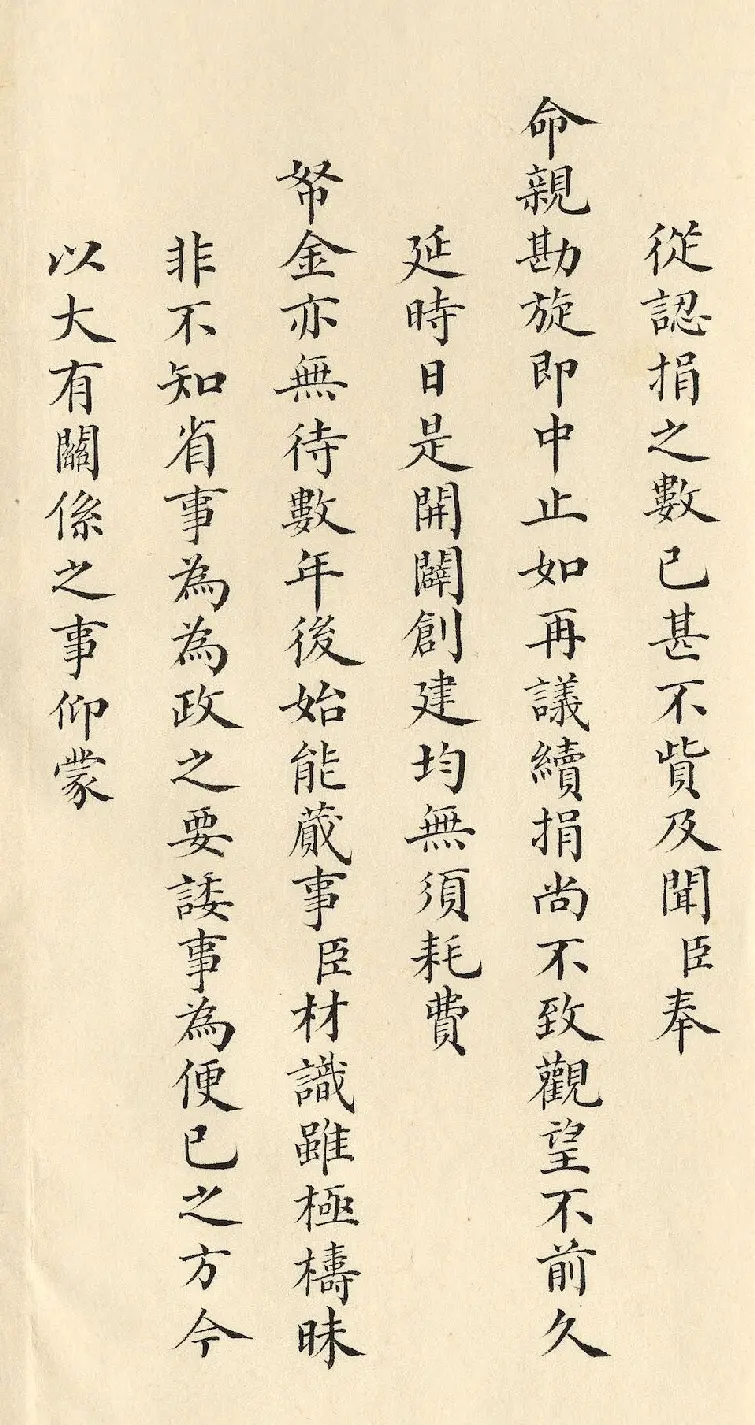 從認捐之數已甚不貲及聞臣奉
命親勘旋即中止如再議續捐尚不致觀望不前久
延時日是開闢創建均無須耗費
帑金亦無待數年後始能蕆事臣材識雖極檮昧
非不知省事為為政之要諉事為便已之方今
以大有關係之事仰蒙